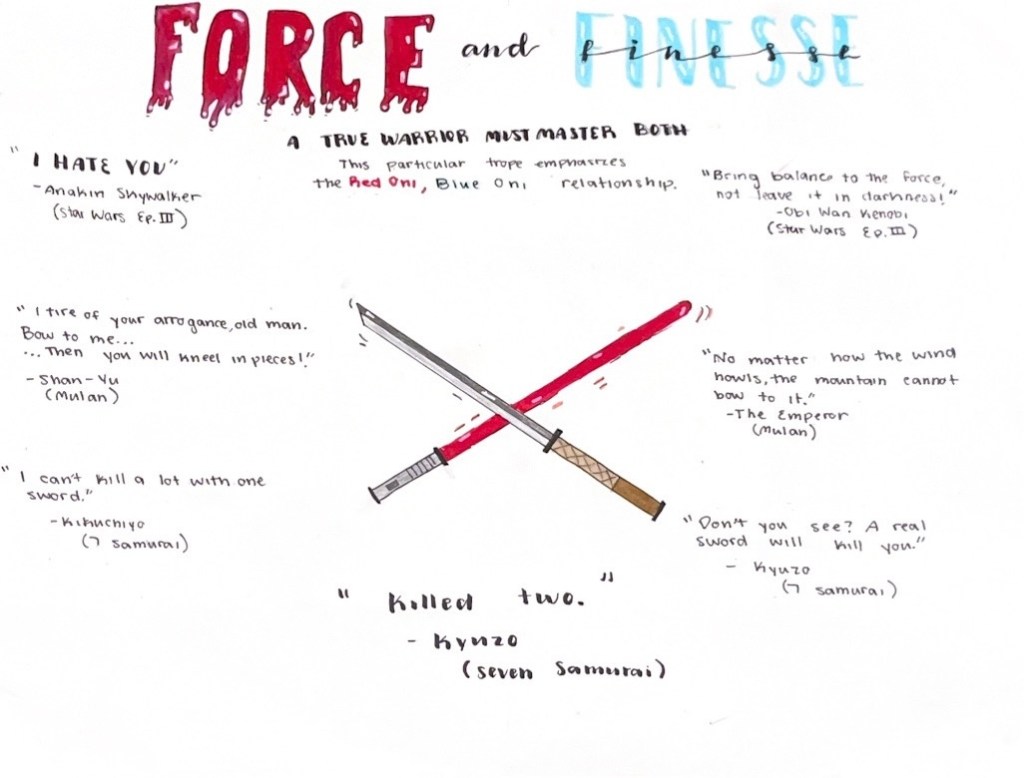 FORCE and FINESSE
finesse
A TRUE WARRIOR MUST MASTER BOTH
This particular trope emphasizes
the Red Oni, Blue Oni relationship.
"I HATE YOU"
-Anakin Skywalker
(Star Wars Ep. III)
"Bring balance to the force,
not leave it in darkness!"
-Obi Wan Kenobi
(Star Wars Ep. III)
"I tire of your arrogance, old man.
Bow to me...
...Then you will kneel in pieces!"
-Shan-Yu
(Mulan)
"No matter how the wind
howls, the mountain cannot
bow to it."
-The Emperor
(Mulan)
"I can't kill a lot with one
sword."
-Kikuchiyo
(7 samurai)
"Don't you see? A real
sword will kill you."
- Kyuzo
(7 samurai)
"Killed two."
- Kyuzo
(seven samurai)